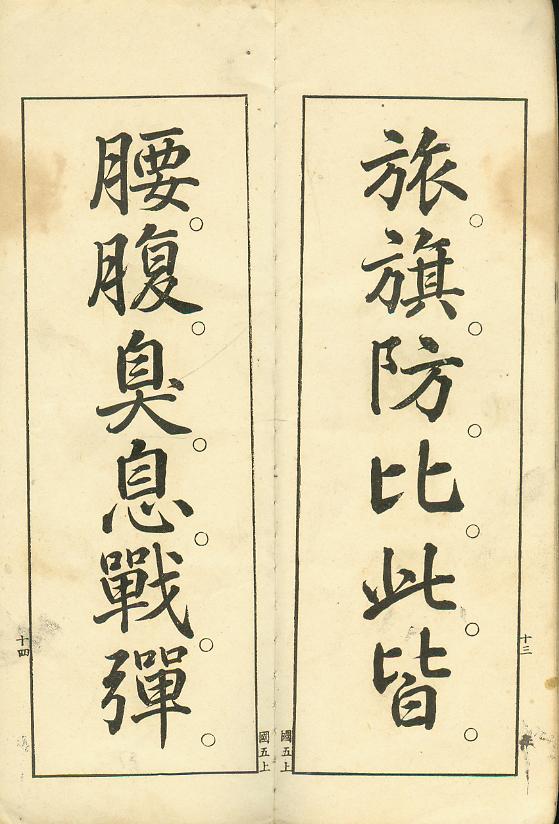 旅。旗。防。比。此。皆。
十三
國五上
腰。腹。臭。息。戰。彈。
十四
國五上